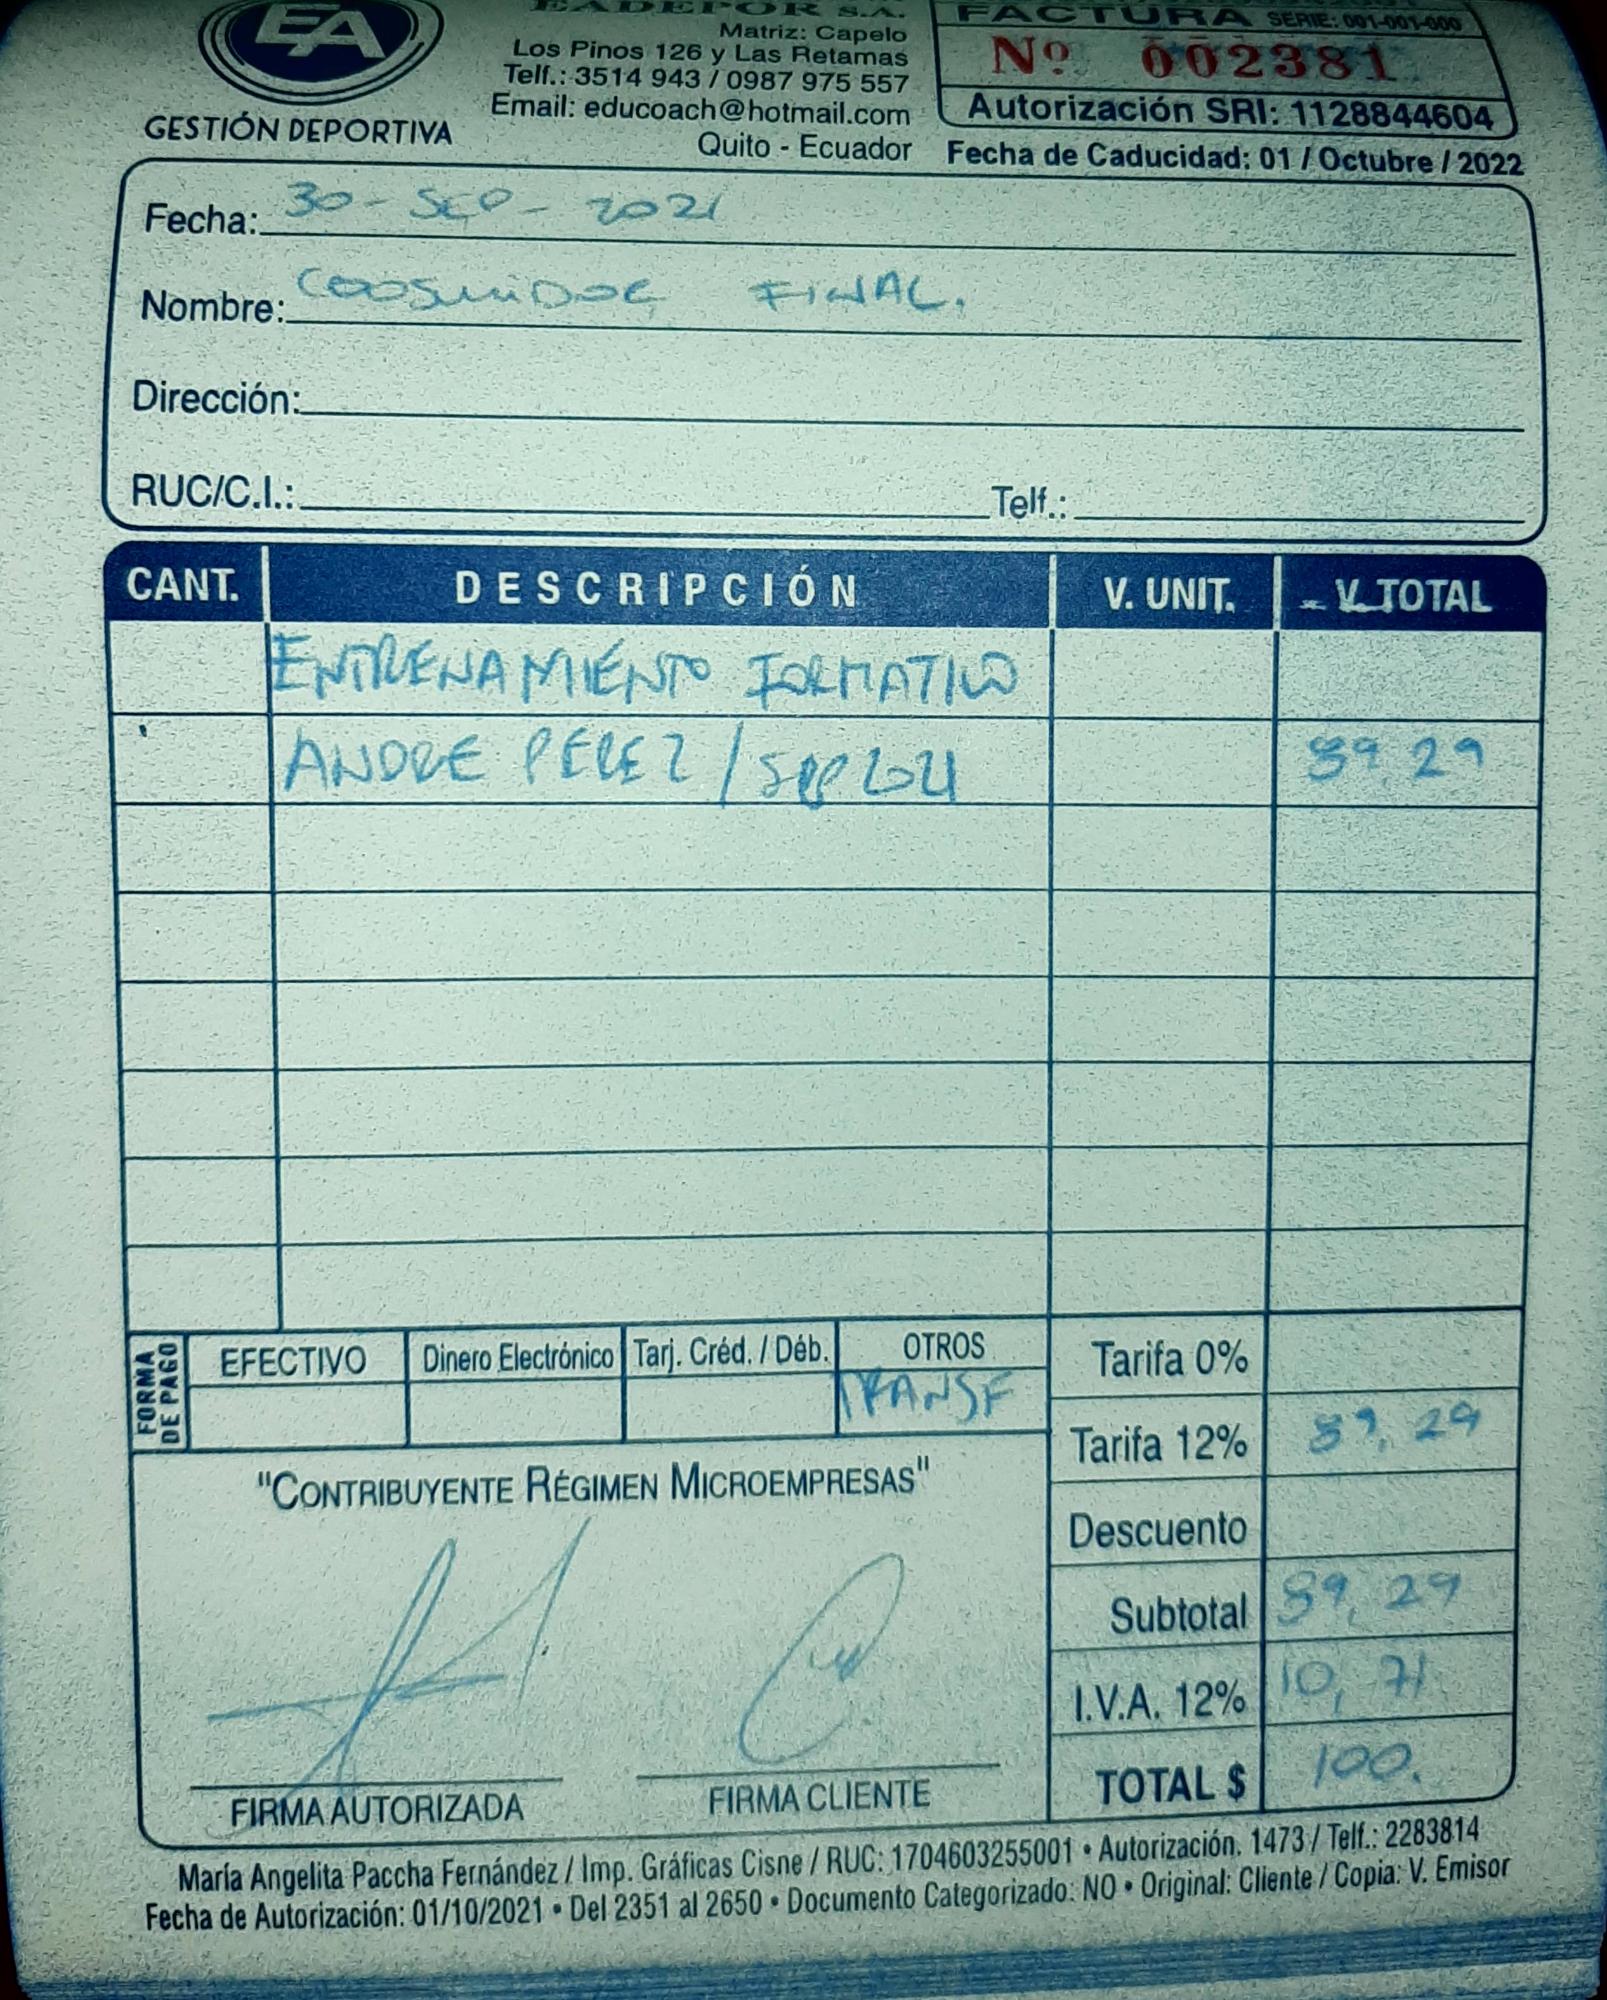 EA
GESTIÓN DEPORTIVA
EADEPOR S.A.
Matriz: Capelo
Los Pinos 126 y Las Retamas
Telf.: 3514 943 / 0987 975 557
Email: educoach@hotmail.com
Quito - Ecuador
FACTURA SERIE: 001-001-000
Nº 002381
Autorización SRI: 1128844604
Fecha de Caducidad: 01 / Octubre / 2022
Fecha: 30 - SEP - 2021
Nombre: CONSUMIDOR FINAL.
Dirección:
RUC/C.I.: Telf.:
CANT. DESCRIPCIÓN V. UNIT. V. TOTAL
ENTRENAMIENTO FORMATIVO
ANDRE PEREZ / SEP 2021 89,29
FORMA DE PAGO
EFECTIVO Dinero Electrónico Tarj. Créd. / Déb. OTROS
TRANSF
Tarifa 0%
Tarifa 12% 89,29
Descuento
Subtotal 89,29
I.V.A. 12% 10,71
TOTAL $ 100.
"CONTRIBUYENTE RÉGIMEN MICROEMPRESAS"
FIRMA AUTORIZADA FIRMA CLIENTE
María Angelita Paccha Fernández / Imp. Gráficas Cisne / RUC: 1704603255001 • Autorización. 1473 / Telf.: 2283814
Fecha de Autorización: 01/10/2021 • Del 2351 al 2650 • Documento Categorizado: NO • Original: Cliente / Copia: V. Emisor